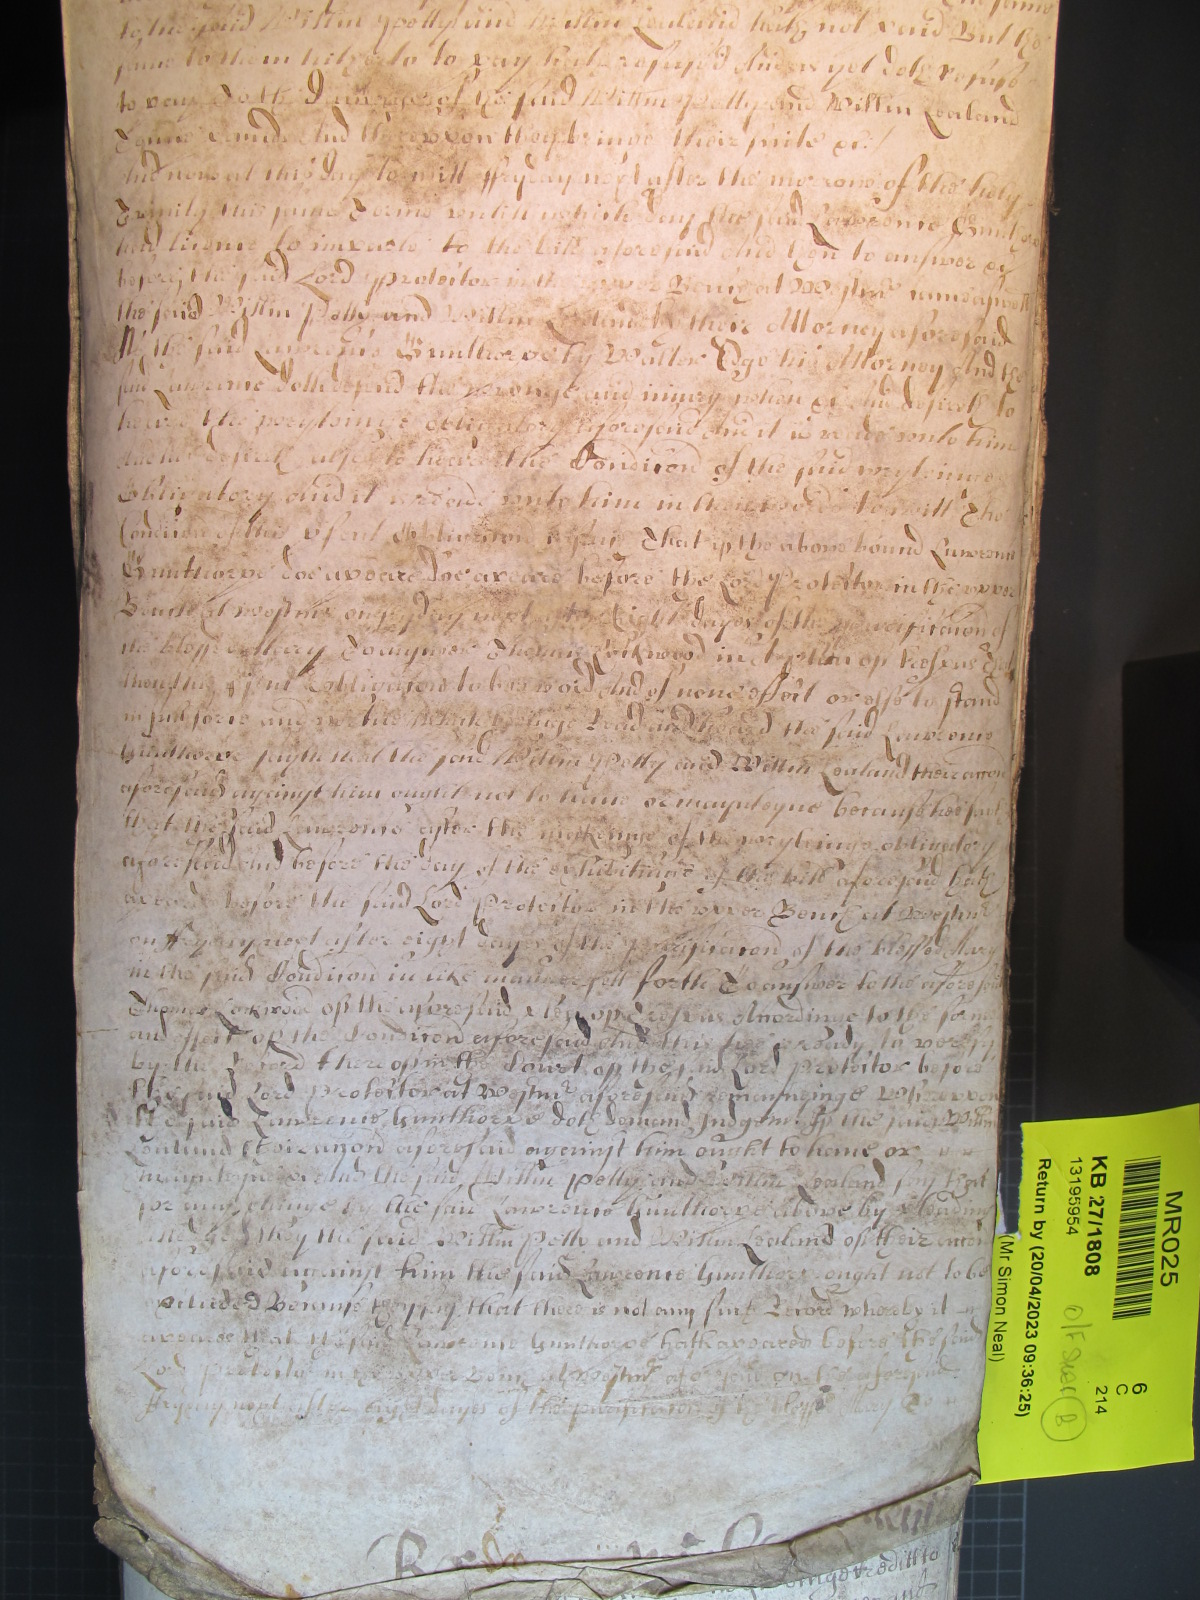 to the said Willm Pelly and Willm Lealand hath not paid But the
same to them hitherto to pay hath refused And as yet doth refuse
to pay To the Damage of the said Willm Pelly and Willm Lealand
And thereupon they bringe their suite &c
And now at this day to witt ffryday next after the morrow of the holy
Trinity this same Terme untill which day the said Lawrence Gunthorpe
had licence to imparle to the bill aforesaid And then to answer &c
before the said Lord Protector in the upper Bench at Westmr came aswell
the said Willm Pelly and Willm Lealand by their Attorney aforesaid
As the said Lawrence Gunthorpe by Walter Ege his Attorney And the
said Lawrence doth defend the wronge and injury when &c And desireth to
heare the wrytinge obligatory aforesaid And it is reade unto him
And he desireth alsoe to heare the Condicion of the said wrytinge
Obligatory And it is reade unto him in these words to witt The
Condicion of this present Obligacion is such That if the above bound Lawrence
Gunthorpe doe appeare doe appeare before the Lord Protector in the upper
Bench at Westmr on ffryday next after Eight dayes of the purificacion of
the blessed Mary To answer Thomas Lockwood in a plea of trespas
then this present obligacion to be void And of none effect or else to stand
in full force and vertue Which beinge Read and heard the said Lawrence
Gunthorpe sayth that the said Willm Pelly and Willm Lealand their accon
aforesaid against him ought not to have or maynteyne because hee saith
that the said Lawrence after the makeinge of the wrytinge obligatory
aforesaid and before the day of the exhibitinge of the bill aforesaid hath
appeard before the said Lord Protector in the upper Bench at Westmr
on ffryday next after eight dayes of the purificacion of the blessed Mary
in the said Condicion in like manner sett forth To answer to the aforesaid
Thomas Lockwood of the aforesaid plea of trespas Accordinge to the forme
and effect of the Condicion aforesaid And this hee is ready to verify
by the Record thereof in the Court of the said Lord Protector before
the said Lord Protector at Westmr aforesaid remayninge Whereupon
the said Lawrence Gunthorpe doth demand Judgmt If the said Willm
Lealand their accon aforesaid against him ought to have or
maynteyne &c And the said Willm Pelly and Willm Lealand say that
for any thinge by the said Lawrence Gunthorpe above by pleading
they the said Willm Pelly and Willm Lealand of their accon
aforesaid against him the said Lawrence Gunthorpe ought not to be
precluded Because they say that there is not any such Record whereby it
appeares that the said Lawrence Gunthorpe hath appeared before the said
Lord Protector in the upper Bench at Westmr aforesaid on the aforesaid
ffryday next after eight dayes of the purificacion of the blessed Mary To
MR025
KB 27/1808
13195954
6
C
214
Return by (20/04/2023 09:36:25)
(Mr Simon Neal)